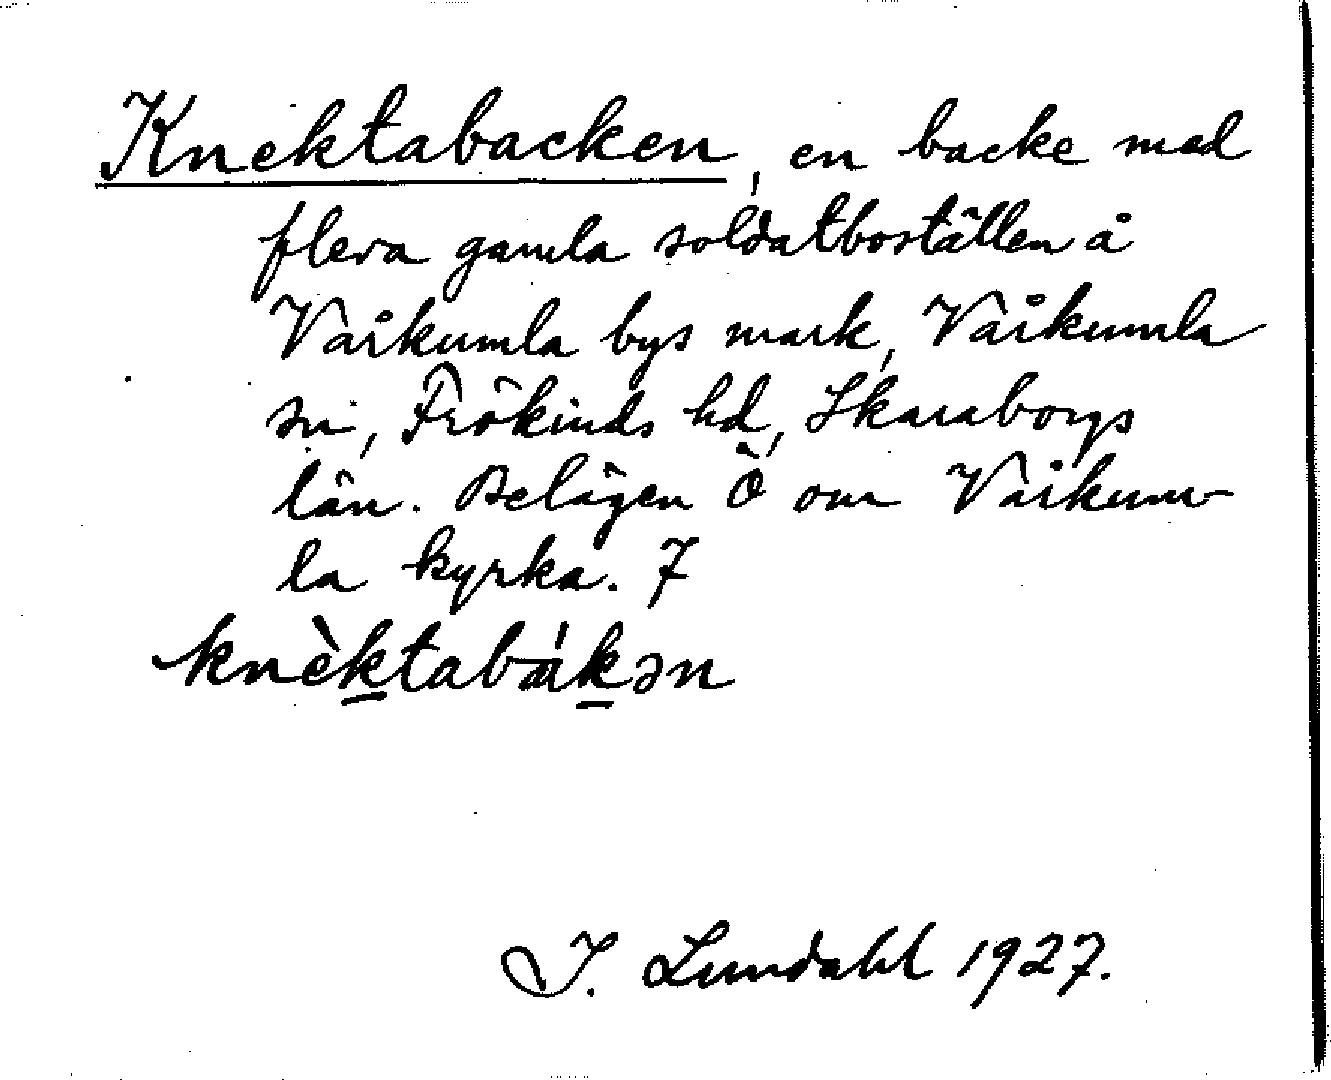 Knektabacken, en backe med
flera gamla soldatboställen å
Vårkumla bys mark, Vårkumla
sn, Frökinds hd, Skaraborgs
län. Belägen Ö om Vårkum-
la kyrka. 7
knèktabákən
I. Lundahl 1927.